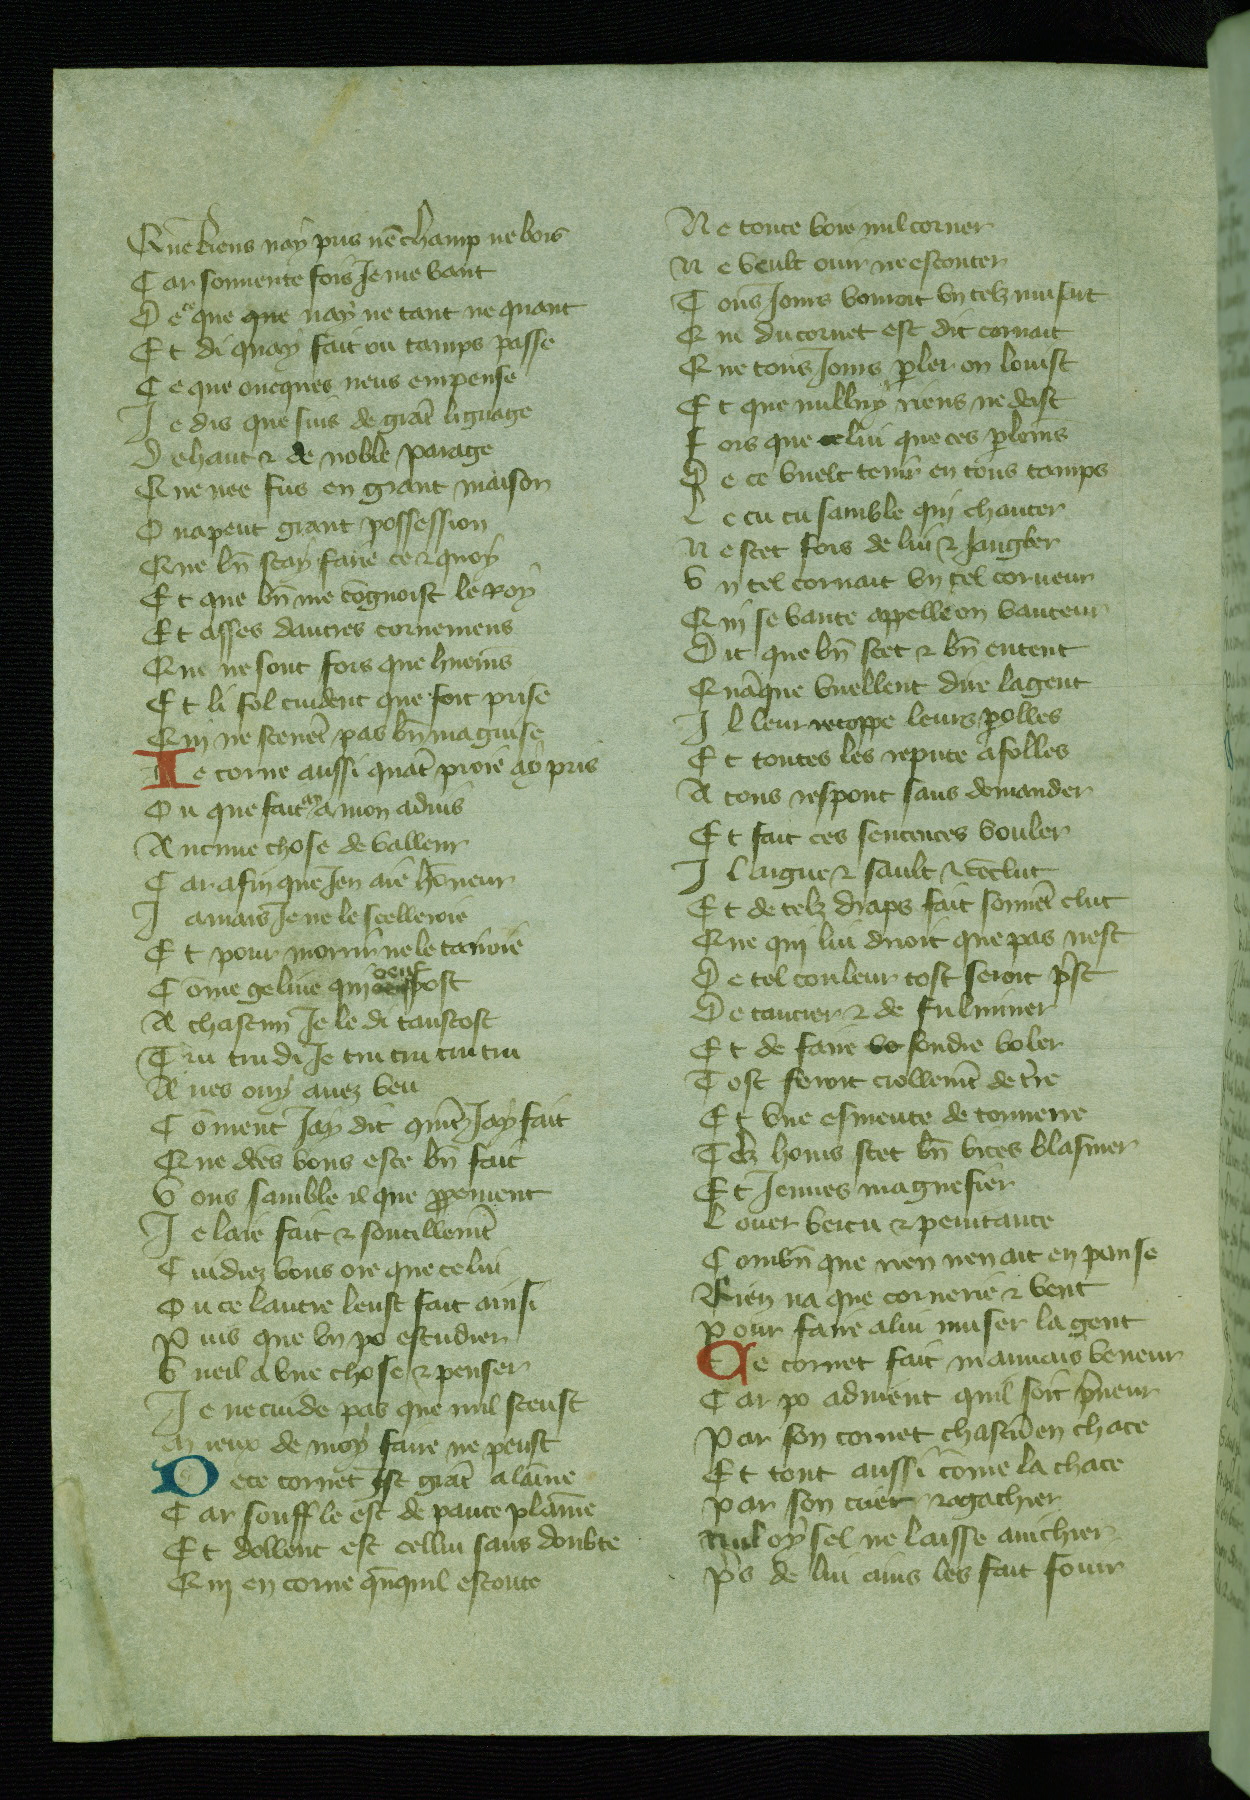 Que riens nay pris nē champ ne bois
Car souuente fois Je me vant
De ce que nay ne tant ne quant
Et di quay fait ou tamps passe
Ce que oncques neus empense
Je dis que suis de grāt lignage
De haut & de noble parage
Que nee fus en grant maison
Ou apeut grant possession
Que bn̄ scay faire ce & quoy
Et que bn̄ me cōgnoist le roy
Et asses dautres cornemens
Que ne sont fors que
Et li fol cuident que soit prise
Qui ne sceuēt pas bn̄ ma guise
Je corne aussi quāt proie ay pris
Ou que fait ay a mon aduis
Aucune chose de valleur
Car afin que Jen aie hōneur
Jamais Je ne le scelleroie
Et pour morir ne le tairoie
Cōme geline qui oeuf post
A chascun Je le di tanstost
Tru tru di Je tru tru tru tru
Aues ouy auez veu
Cōment Jay dit quāt Jay fait
Que dtes vous este bn̄ fait
Vous samble il que ppement
Je laie fait & soutillemēt
Cuidiez vous ore que celui
Ou ce lautre leust fait ainsi
Puis que vn po estudier
Vueil a vne chose & penser
Je ne cuide pas que nul sceust
Mieux de moy faire ne peust
De ce cornet ist grāt alaine
Car souffle est de pance plaine
Et dollent est cellui sans doubte
Qui en corne quāquil escoute
Ne toute voie nul corner
Ne veult ouir ne escouter
Tous Jours vouroit vn telz
Que du cornet est dit cornait
Que tous Jours pler on louist
Et que nulluy riens ne deist
Fors que celui que ces ploins
De ce vuelt tenir en tous tamps
Le cu cu samble qui chanter
Ne scet fors de lui & Jangler
Vn tel cornait vn tel corneur
Qui se vante appelle on vanteur
Dit que bn̄ scet & bn̄ entent
Quāque vuellent dire la gent
Il leur recoppe leurs polles
Et toutes les repute a folles
A tous respont sans demander
Et fait ces sentences vouler
Il argue & sault & cōclut
Et de telz draps fait souuēt clut
Que qui lui diroit que pas nest
De tel couleur tost seroit pst
De tancier & de fulminer
Et de faire fondre voler
Tost feroit crollemēt de tre
Et vne esmeute de tonnerre
Telz homs scet bn̄ vices blasmer
Et Jeunes magnefier
Louer vertu & penitance
Combn̄ que rien nen ait en panse
Rien na que cornerie & vent
Pour faire a lui muser la gent
Ce cornet fait mauuais veneur
Car po aduient quil soit pneur
Par son cornet chascū en chace
Et tout aussi cōme la chace
Par son crier & agachier
Nul oysel ne laisse anichier
Ps de lui ains les fait fouir